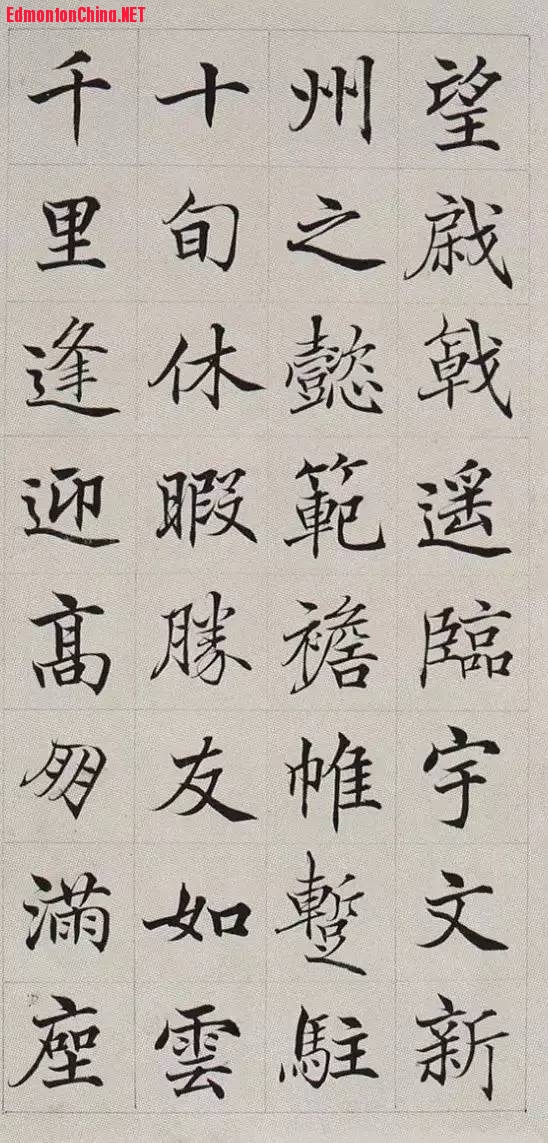 EdmontonChina.NET
望棨戟遥臨宇文新
州之懿範襜帷蹔駐
十旬休暇勝友如雲
千里逢迎髙朋滿座